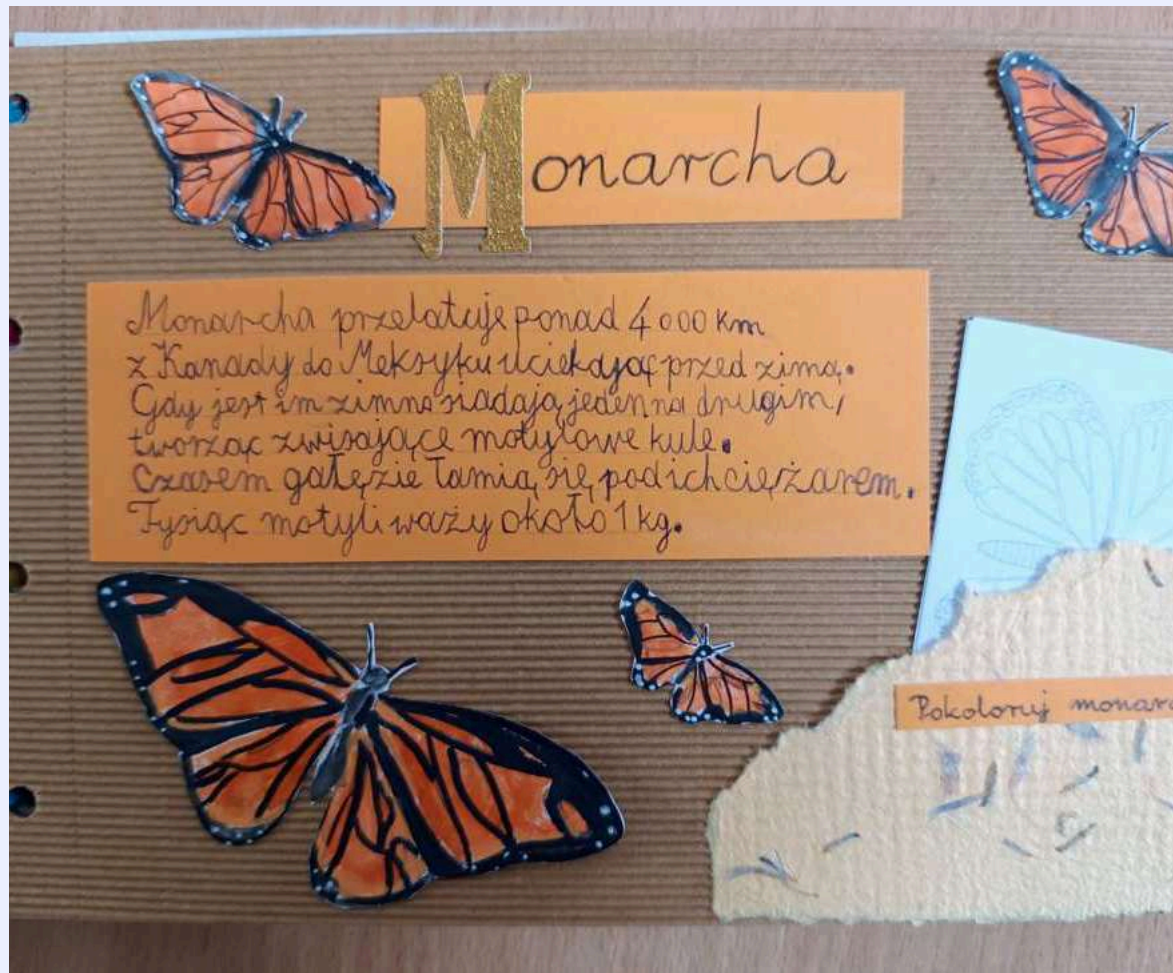 Monarcha
Monarcha przelatuje ponad 4000 km
z Kanady do Meksyku uciekając przed zimą.
Gdy jest im zimno siadają jeden na drugim,
tworząc zwisające motylowe kule.
Czasem gałęzie łamią się pod ich ciężarem.
Tysiąc motyli waży około 1 kg.
Pokoloruj